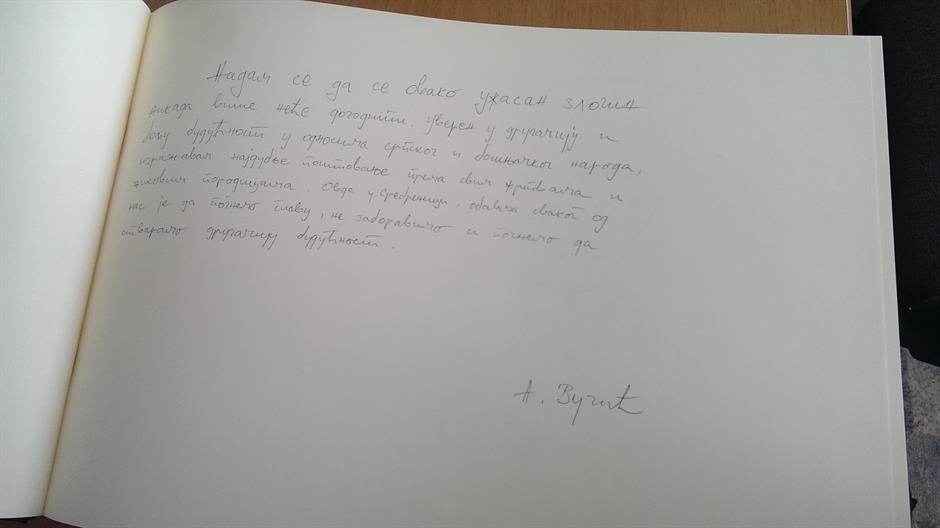 Надам се да се овако ужасан злочин
никада више неће догодити. Уверен у другачију и
бољу будућност у односима српског и бошњачког народа,
изражавам најдубље поштовање према свим жртвама и
њиховим породицама. Овде у Сребреници, обавеза сваког од
нас је да погнемо главу, не заборавимо и почнемо да
стварамо другачију будућност.
А. Вучић